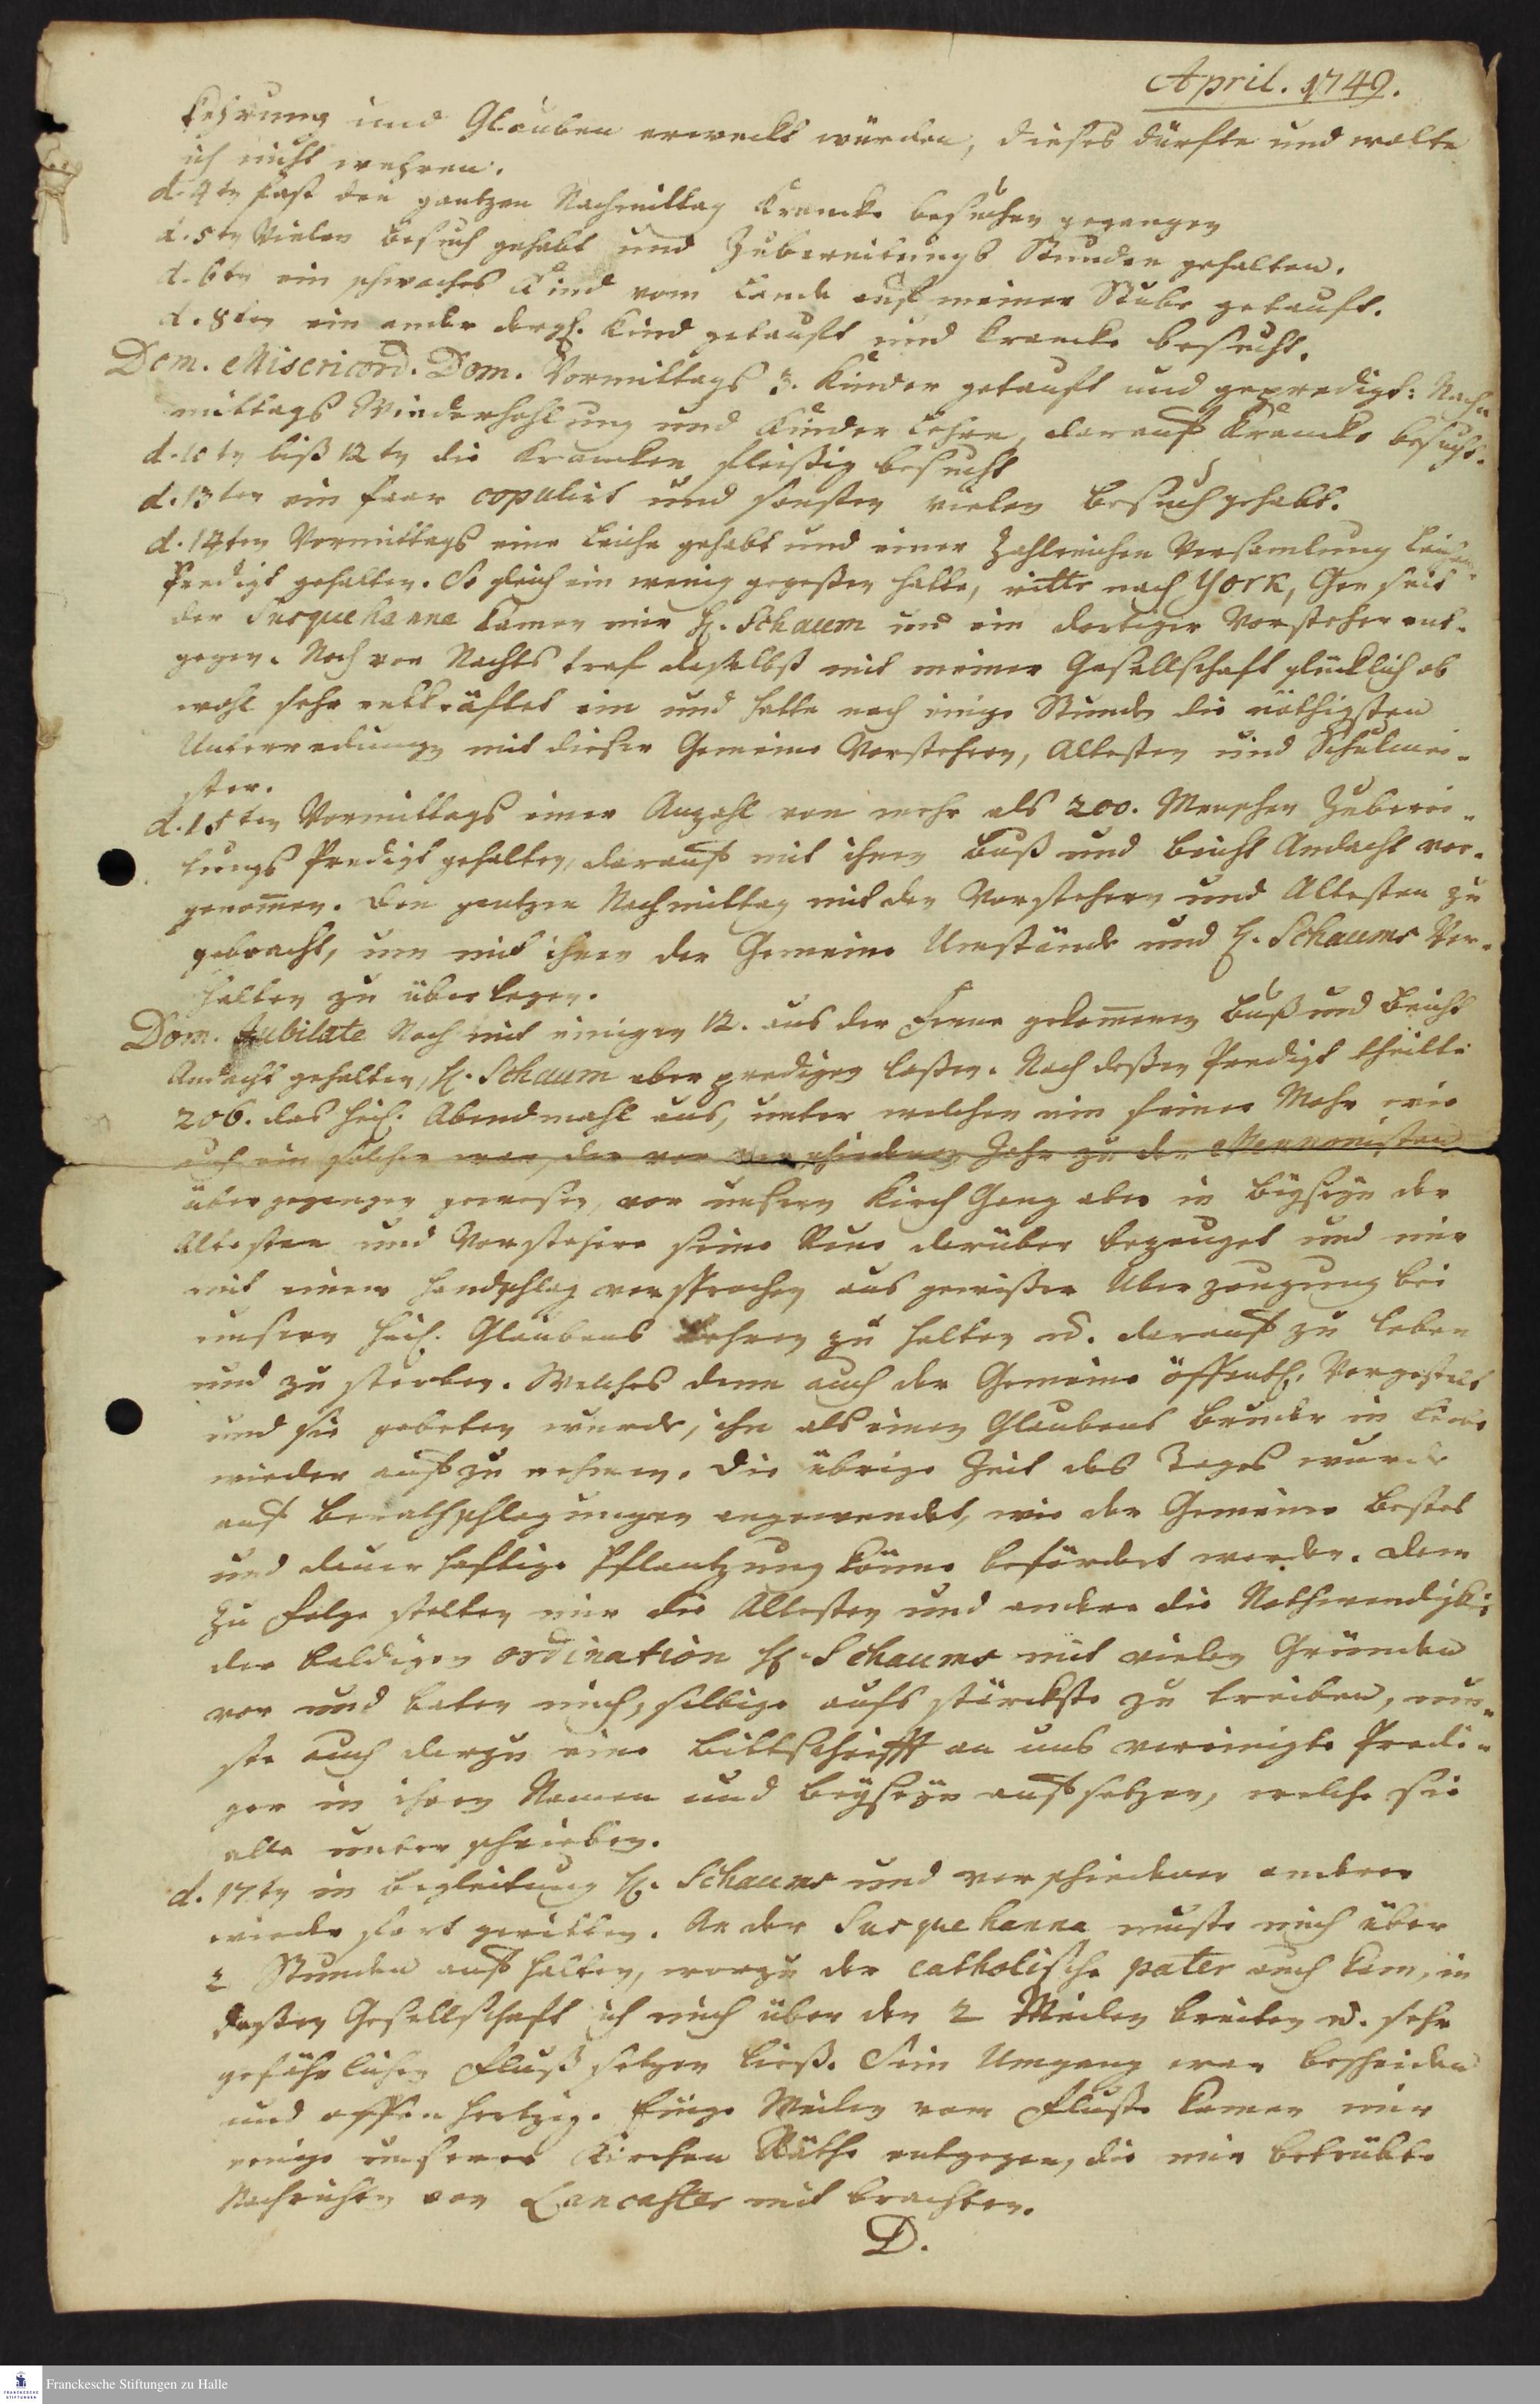 April. 1749.
kehrung und Glauben erweckt würden, dieses dürfte und wolte
ich nicht wehren.
d. 4tn fast den gantzen Nachmittag Krancke besuchen gegangen
d. 5tn Vielen Besuch gehabt und Zubereitungs Stunden gehalten.
d. 6tn ein schwaches Kind vom Lande auf meiner Stube getauft.
d. 8ten ein ander dergl. Kind getauft und Krancke besucht.
Dom. Misericord. Dom. Vormittags 3. Kinder getauft und gepredigt: Nach-
mittags Wiederhohlung und Kinder Lehre, darauf Krancke besucht.
d. 10tn biß 12tn die Krancken fleißig besucht
d. 13ten ein Paar copulirt und sonsten vielen Besuch gehabt.
d. 14ten Vormittags eine Leiche gehabt und einer Zahlreichen Versamlung Leichen-
Predigt gehalten. So gleich ein wenig gegeßen hatte, ritte nach York, Jen seit
der Susquehanna kamen mir H. Schaum und ein dortiger Vorsteher ent-
gegen. Noch vor Nachts traf daselbst mit meiner Gesellschaft glücklich ob
wohl sehr entkräftet ein und hatte noch einige Stunden die nöthigsten
Unterredungen mit dieser Gemeine Vorstehern, Altesten und Schulmei-
ster.
d. 15ten Vormittags einer Anzahl von mehr als 200. Menschen Zuberei-
tungs Predigt gehalten, darauf mit ihnen Buß und Beicht Andacht vor-
genom̄en. Den gantzen Nachmittag mit den Vorstehern und Altesten zu
gebracht, um mit ihnen der Gemeine Umstände und H. Schaums Ver-
halten zu überlegen.
Dom. Jubilate Noch mit einigen 12. aus der Ferne gekom̄enen Buß und Beicht
Andacht gehalten, H. Schaum aber predigen laßen. Nach deßen Predigt theilte
206. das heil. Abendmahl aus, unter welchen ein feiner Mohr wie
auch ein solcher war, der vor verschiedenen Jahr zu den Mennonisten
über gegangen gewesen, vor unsern Kirch Gang aber in beyseyn der
Altesten und Vorstehere seine Reue darüber bezeuget und mir
mit einem Handschlag versprochen, aus gewißer Uberzeugung bei
unsern heil. Glaubens Lehren zu halten u. darauf zu leben
und zu sterben. Welches denn auch der Gemeine öffentl. Vorgestelt
und sie gebeten wurde, ihn als einen Glaubens Bruder in Liebe
wieder auf zu nehmen. Die übrige Zeit des Tages wurde
auf Berathschlagungen angewendet, wie der Gemeine Bestes
und dauerhaftige Pflantzung könne befördert werden. Dem
zu Folge stelten mir die Altesten und andere die Nothwendigkeit
der baldigen ordination H. Schaums mit vielen Gründen
vor und baten mich, selbige aufs stärckste zu treiben, mu-
ste auch darzu eine Bittschrifft an uns vereinigte Predi-
ger in ihrem Namen und beyseyn auf setzen, welche sie
alle unter schrieben.
d. 17.tn in Begleitung H. Schaums und verschiedener anderer
wieder fort geritten. An der Susquehanna muste mich über
2 Stunden auf halten, worzu der catholische pater auch kam, in
deßen Gesellschaft ich mich über den 2 Meilen breiten u. sehr
gefährlichen Fluß setzen ließ. Sein Umgang war bescheiden
und offenhertzig. Einige Meilen vom Fluße kamen mir
einige unserer Kirchen Räthe entgegen, die mir betrübte
Nachrichten von Lancaster mit brachten.
D.
Franckesche Stiftungen zu Halle